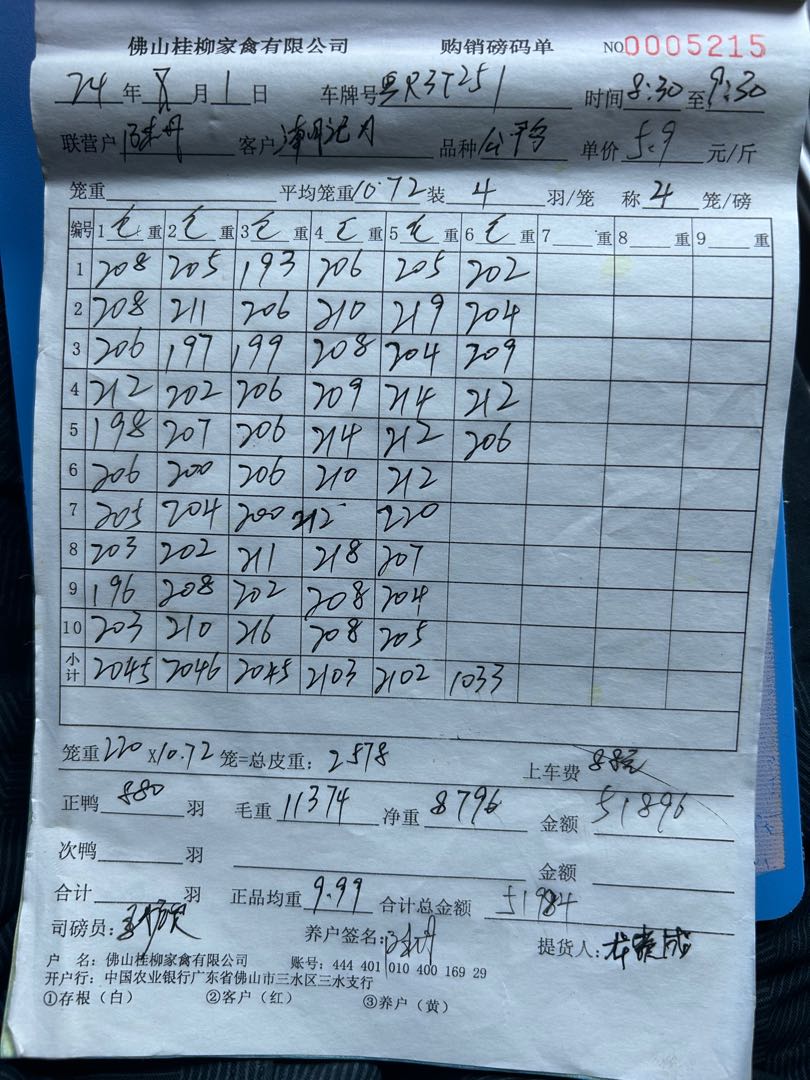 佛山桂柳家禽有限公司 购销磅码单 NO0005215
24年8月1日 车牌号 粤R3T251 时间8:30至9:30
联营户 客户 品种 单价 5.9 元/斤
笼重 平均笼重10.72装 4 羽/笼 称 4 笼/磅
编号 1毛重 2毛重 3毛重 4毛重 5毛重 6毛重 7 重 8 重 9 重
1 208 205 193 206 205 202
2 208 211 206 210 219 204
3 206 197 199 208 204 209
4 212 202 206 209 214 212
5 198 207 206 214 212 206
6 206 200 206 210 212
7 205 204 200 212 220
8 203 202 211 218 207
9 196 208 202 208 204
10 203 210 216 208 205
小计 2045 2046 2045 2103 2102 1033
笼重220×10.72笼=总皮重：2578 上车费 88元
正鸭 880 羽 毛重 11374 净重 8796 金额 51896
次鸭 羽 金额
合计 羽 正品均重 9.99 合计总金额 51984
司磅员： 养户签名： 提货人：
户 名：佛山桂柳家禽有限公司 账号：444 401 010 400 169 29
开户行：中国农业银行广东省佛山市三水区三水支行
①存根（白） ②客户（红） ③养户（黄）